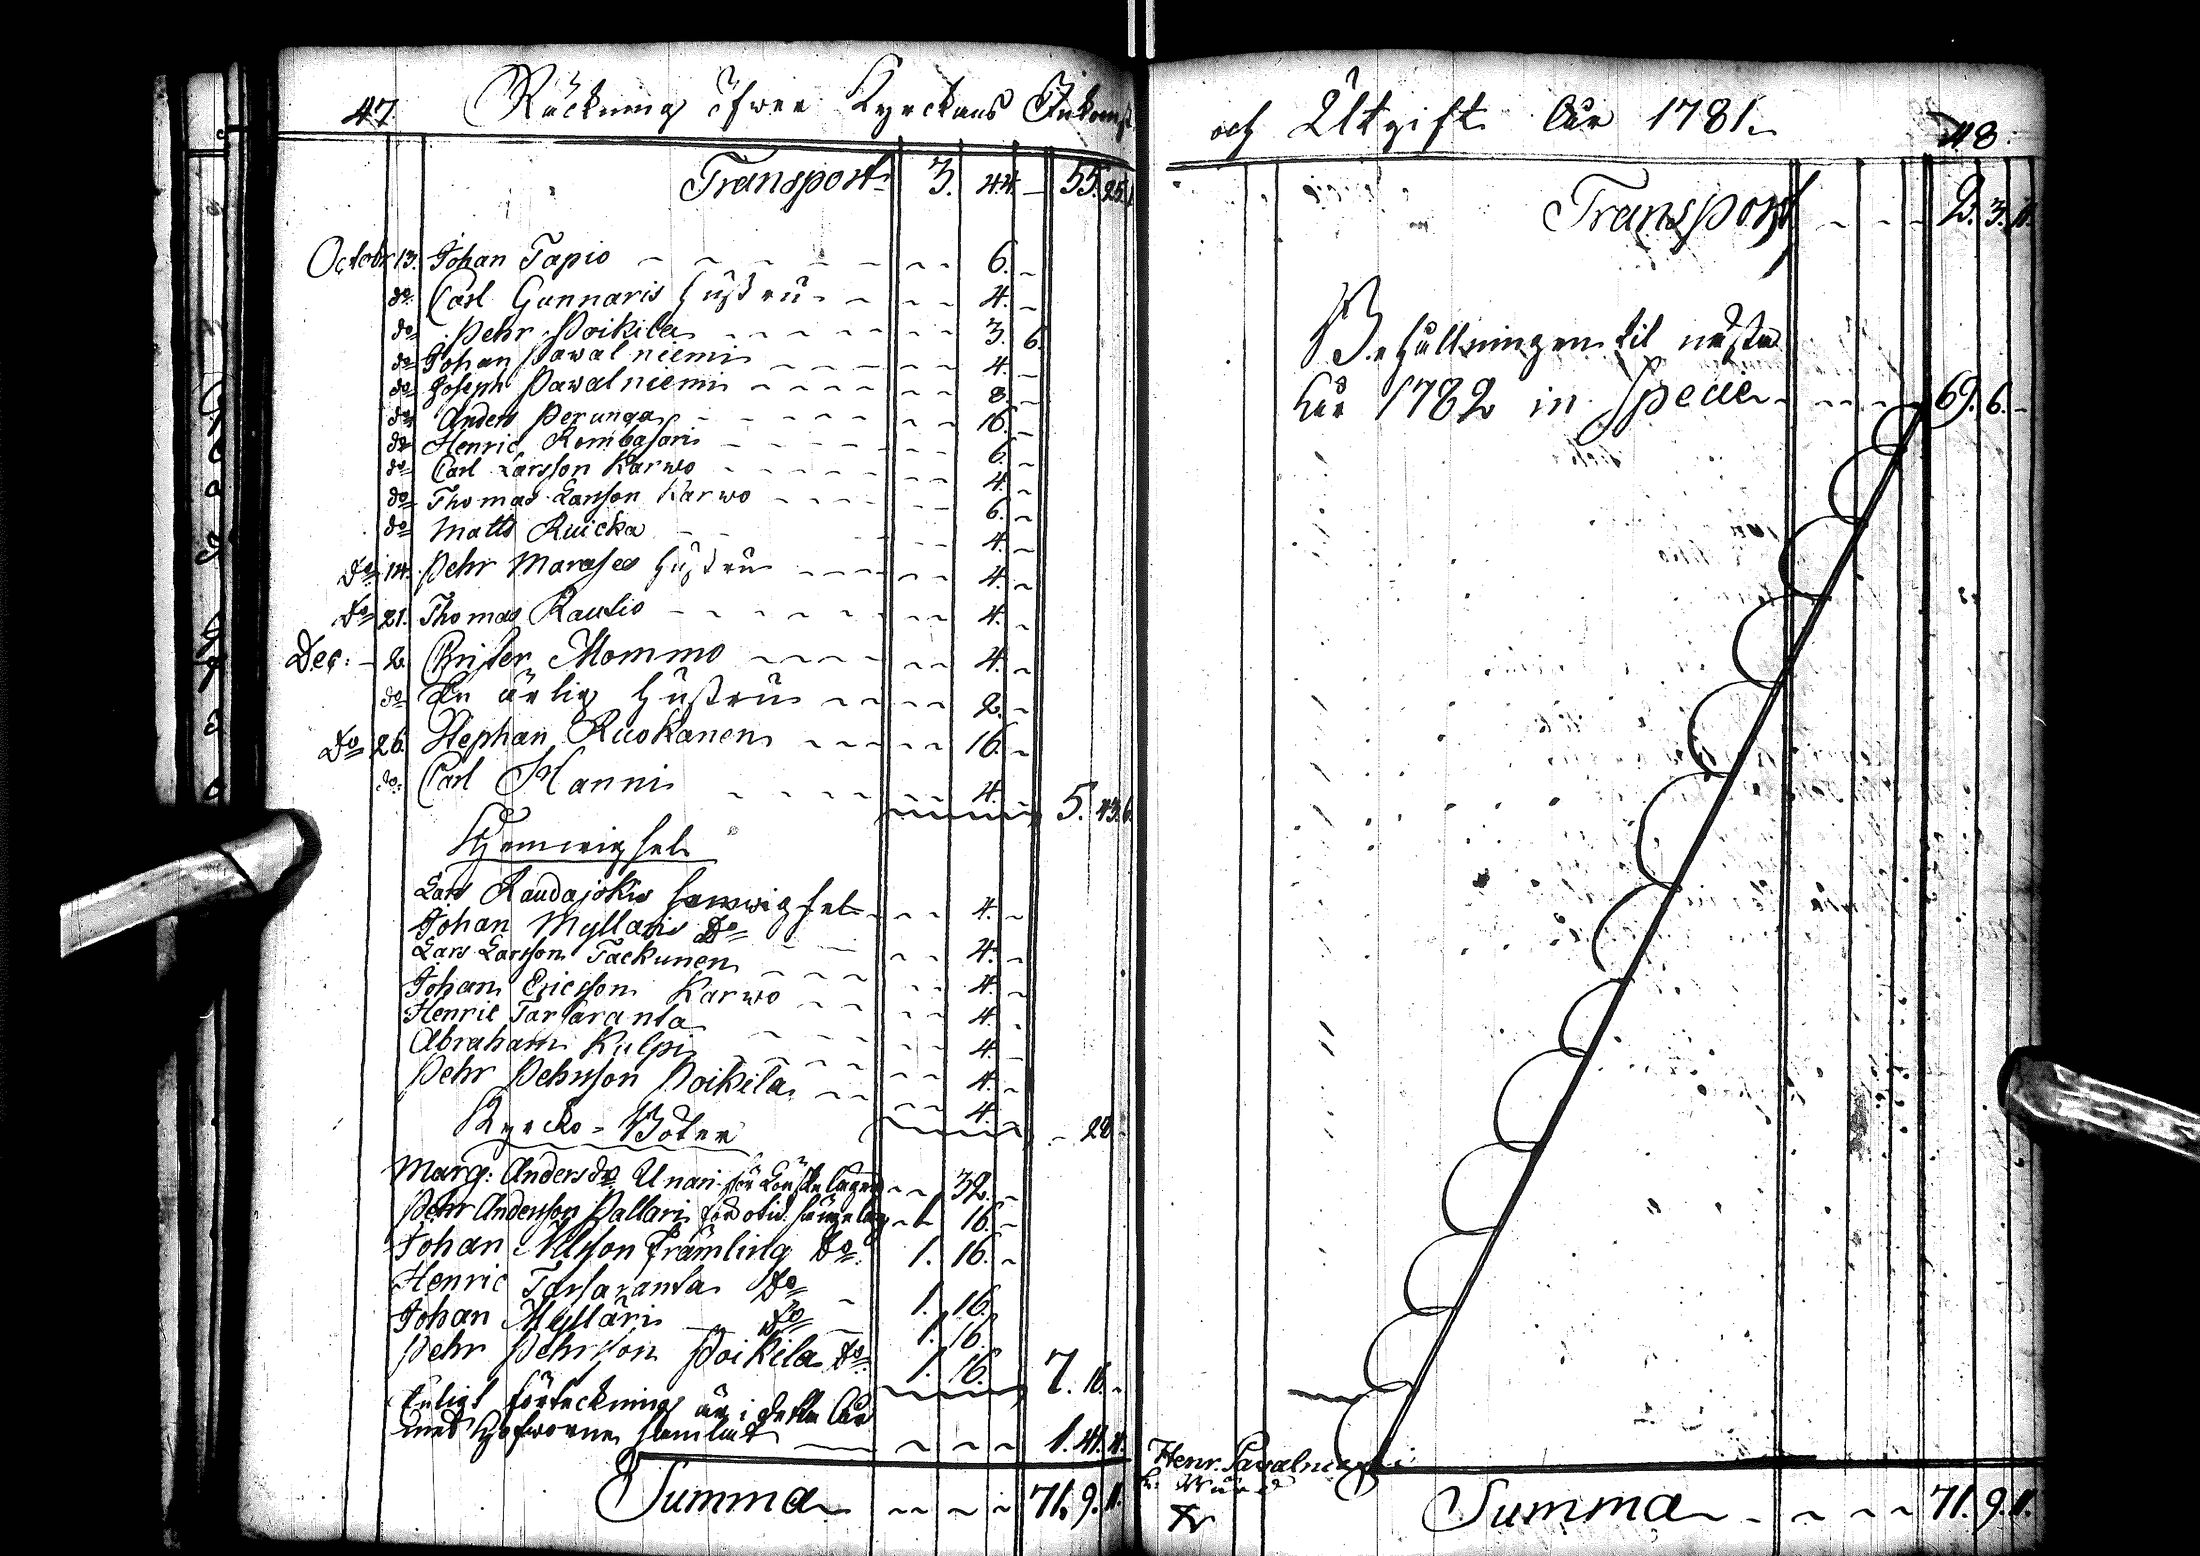 47. Räckning öfwer Kyrckans Inkomst
Transport 3. 44. – 55. 25. 1.
Octobr 13. Johan Tapio 6. –
do Carl Gunnaris hustru 4. –
do Pehr Poikila 3. 6.
do Johan Pawalniemi 4. –
do Joseph Pawalniemi 8. –
do Anders Perunga 16. –
do Henric Kembasari 6. –
do Carl Larsson Karwo 4. –
do Thomas Larsson Karwo 6. –
do Matts Kuicka 4. –
Do 14. Pehr Marases hustru 4. –
Do 21. Thomas Rautio 4. –
Dec: – 2. Christer Mommo 4. –
do En ärlig hustru 2. –
Do 26. Stephan Ruokanen 16. –
do Carl Hanni 4. 5. 43. 6.
Hemwigsel
Lars Raudajokis hemwigsel 4. –
Johan Myllaris Do 4. –
Lars Larsson Tackunen 4. –
Johan Ericsson Karwo 4. –
Henric Tarsaranta 4. –
Abraham Kulpi 4. –
Pehr Pehrsson Poikila 4. – 28.
Kyrcko-Böter
Marg: Andersdr Unari för Lönskeläger 32. –
Pehr Andersson Pallari för otid: sängelag 1. 16. –
Johan Nilsson Främling Do 1. 16. –
Henric Tarsaranta Do 1. 16.
Johan Mylläri Do 1. 16.
Pehr Pehrsson Poikila Do 1. 16. 7. 16. –
Enligt förteckning är i detta år
med Hofworne samlat 1. 41. 4.
Summa 71. 9. 11.
och Utgift År 1781. 48.
Transport 2. 3. 11.
Behållningen til nästa
år 1782 in Specie 69. 6. –
Henr. Pawalniemi
Summa 71. 9. 11.